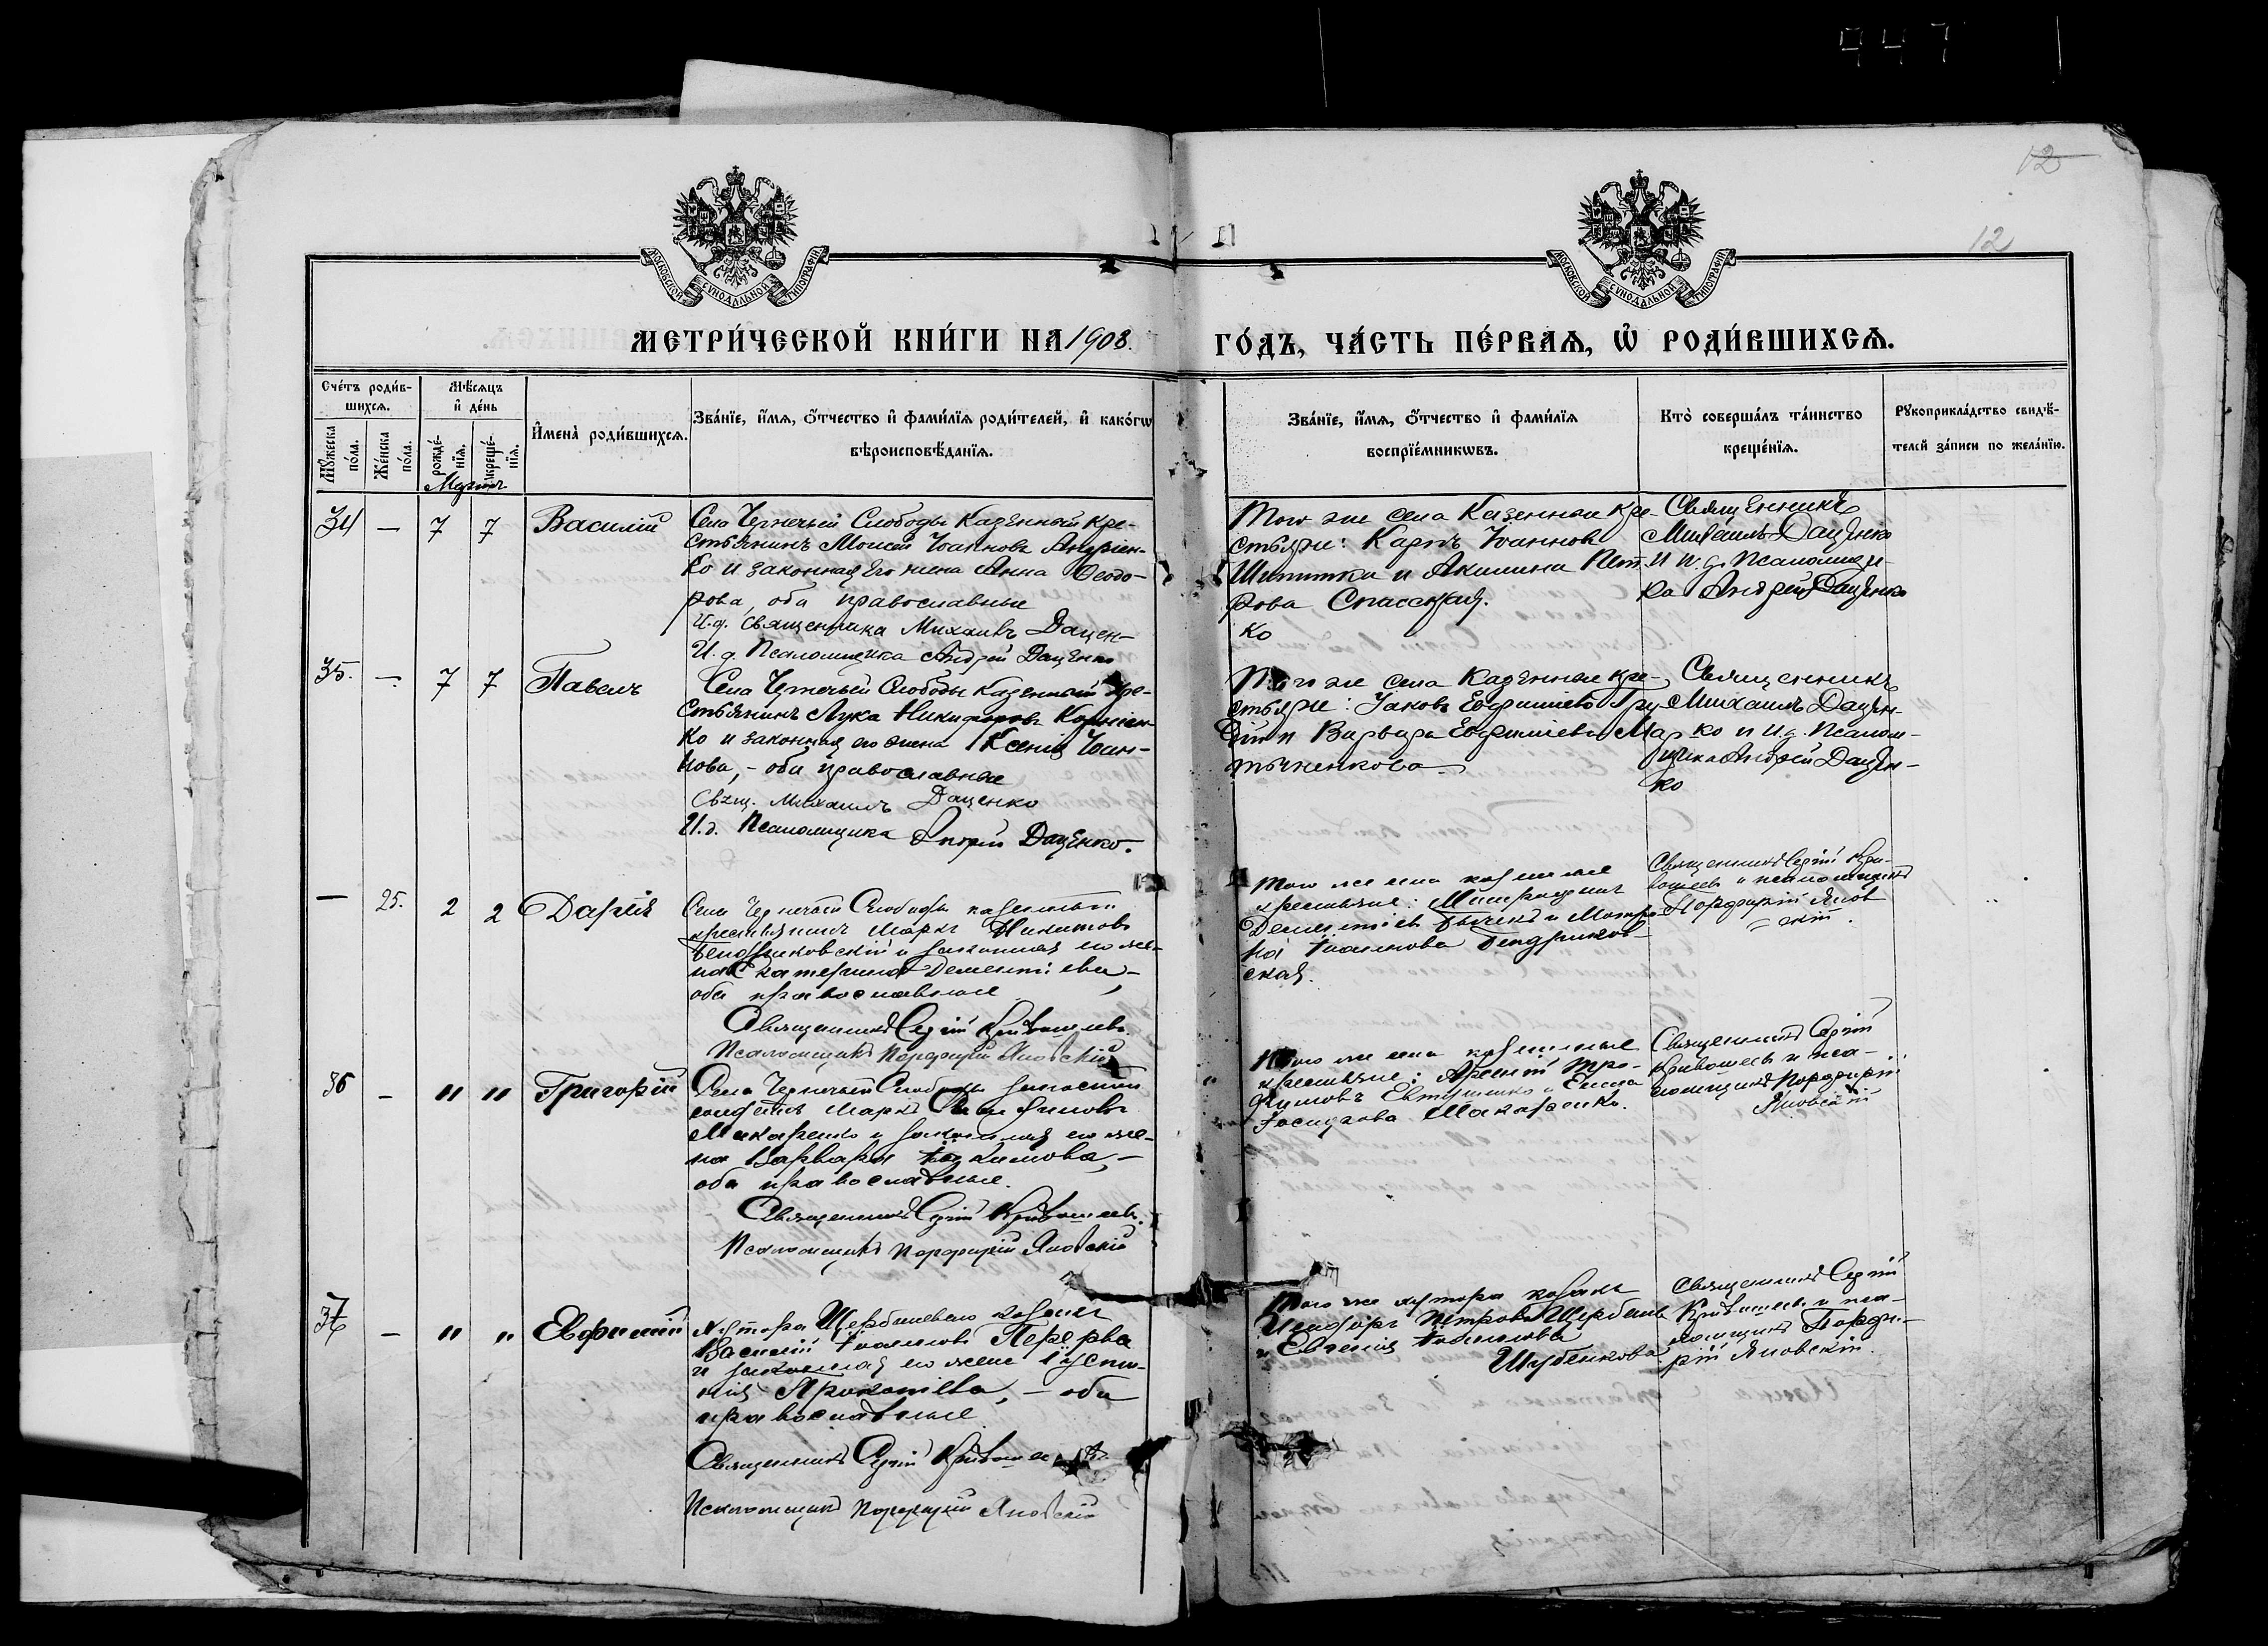 947
12
12
МОСКОВСКОЙ СѴНОДАЛЬНОЙ ТИПОГРАФІИ
МОСКОВСКОЙ СѴНОДАЛЬНОЙ ТИПОГРАФІИ
МЕТРИ́ЧЕСКОЙ КНИ́ГИ НА 1908.
ГО́ДЪ, ЧА́СТЬ ПЕ́РВАЯ, Ѡ҆ РОДИ́ВШИХСЯ.
Сче́тъ роди́в-
шихся.
Мѣ́сяцъ
и҆ де́нь
Мꙋ́жеска
по́ла.
Же́нска
по́ла.
рожде́-
нїя.
креще́-
нїя.
И҆мена̀ роди́вшихся.
Зва́нїе, и҆́мя, ѻ҆́тчество и҆ фами́лїя роди́телей, и҆ како́гѡ
вѣроисповѣ́данїя.
Зва́нїе, и҆́мя, ѻ҆́тчество и҆ фами́лїя
воспрїе́мникѡвъ.
Кто̀ соверша́лъ та́инство
креще́нїя.
Рꙋкоприкла́дство свидѣ́-
телей за́писи по жела́нїю.
Мартъ
34 — 7 7 Василій
Села Чернечьей Слободы Казенный кре-
стьянинъ Моисей Іоанновъ Андріен-
ко и законная его жена Анна Ѳеодо-
рова, оба православные
И.д. Священника Михаилъ Дацен-
ко
И.д. Псаломщика Андрей Даценко
Того же села Казенные кре-
стьяне: Карпъ Іоанновъ
и Акилина Пет-
рова Спасская.
Священникъ
Михаилъ Даценко
и И.д. Псаломщи-
ка Андрей Даценко
35. — 7 7 Павелъ
Села Чернечьей Слободы Казенный кре-
стьянинъ Лука Никифоровъ Корніен-
ко и законная его жена Ксенія Іоан-
нова, – оба православные
Свящ. Михаилъ Даценко
И.д. Псаломщика Андрей Даценко.
Того же села Казенные кре-
стьяне: Іаковъ Евфиміевъ
и Варвара Евфиміева Мар-
тыненкова
Священникъ
Михаилъ Дацен-
ко и И.д. Псалом-
щика Андрей Дацен-
ко
— 25. 2 2 Дарія
Села Чернечьей Слободы казенный
крестьянинъ Маркъ Никитовъ
и законная его же-
на Екатерина Дементіева –
оба православные
Священникъ Сергій Кривошеевъ.
Псаломщикъ Порфирій Яновскій
Того же села казенные
крестьяне:
Дементіевъ и Матро-
на Іоаннова
ская.
Священникъ Сергій Кри-
вошеевъ и псаломщикъ
Порфирій Янов-
скій.
36 — " " Григорій
Села Чернечьей Слободы запасный
солдатъ Маркъ
Макаренко и законная его же-
на Варвара Іоакимова, –
оба православные.
Священникъ Сергій Кривошеевъ.
Псаломщикъ Порфирій Яновскій
Того же села казенные
крестьяне: Арсеній Тро-
фимовъ Евтушенко и Елена
Макаренко.
Священникъ Сергій
Кривошеевъ и пса-
ломщикъ Порфирій
Яновскій
37 — " " Евфимій
Хутора Щербаневаго козакъ
Василій Іоанновъ Перерва
и законная его жена Іусти-
нія Прокопіева, – оба
православные
Священникъ Сергій Кривошеевъ
Псаломщикъ Порфирій Яновскій
Того же хутора козакъ
Исидоръ Петровъ Щербань
и Евгенія Іоаннова
Шубенкова
Священникъ Сергій
Кривошеевъ и пса-
ломщикъ Порфи-
рій Яновскій.